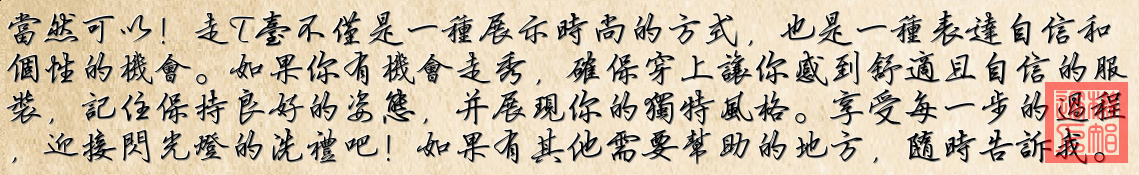 當然可以！走T臺不僅是一種展示時尚的方式，也是一種表達自信和
個性的機會。如果你有機會走秀，確保穿上讓你感到舒適且自信的服
裝，記住保持良好的姿態，并展現你的獨特風格。享受每一步的過程
，迎接閃光燈的洗禮吧！如果有其他需要幫助的地方，隨時告訴我。